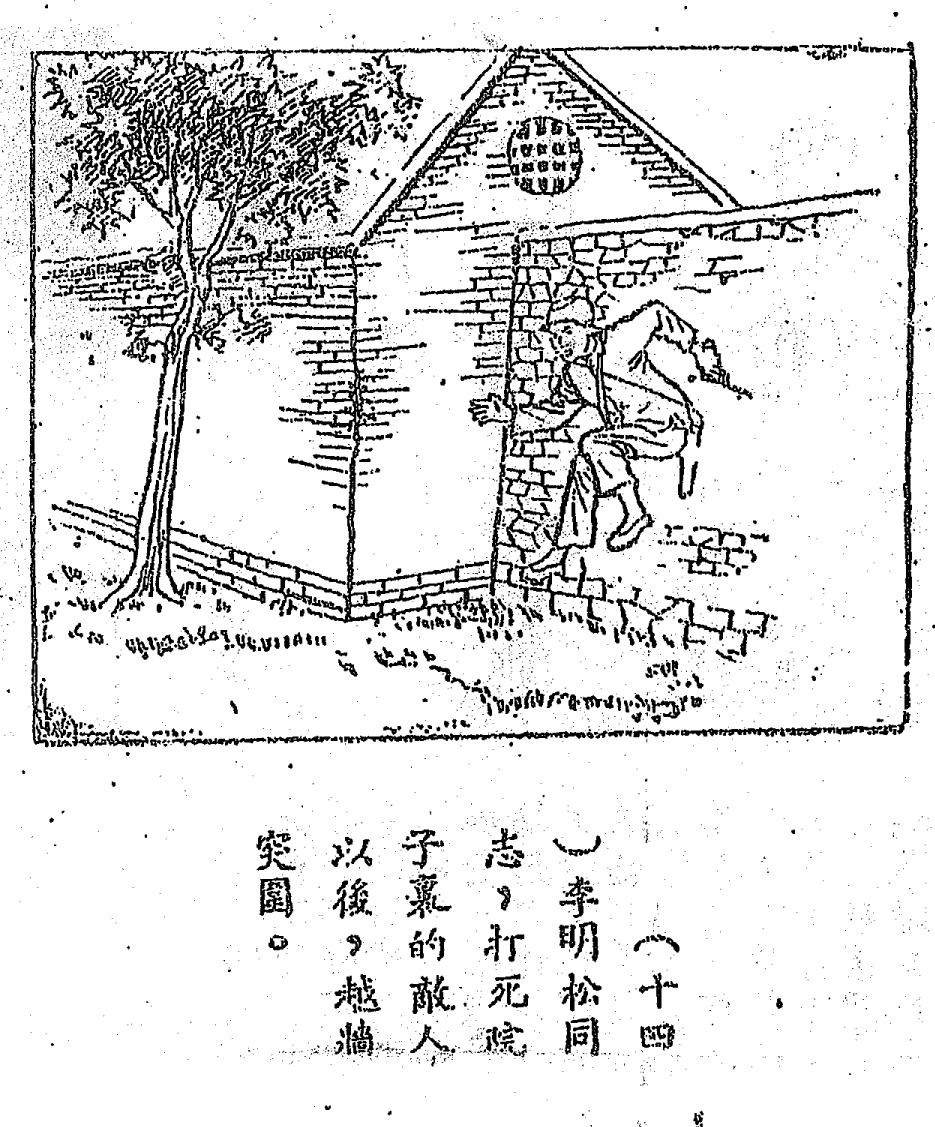 （十四
）李明松同
志，打死院
子裏的敵人
以後，越牆
突圍。